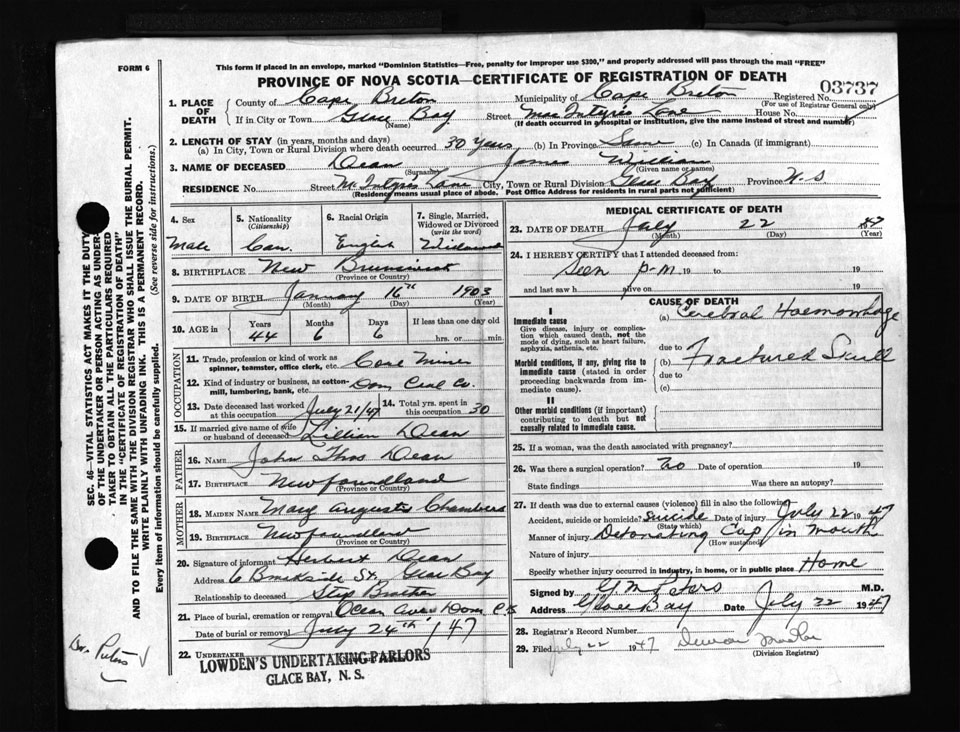 FORM 6
This form if placed in an envelope, marked "Dominion Statistics—Free, penalty for improper use $300," and properly addressed will pass through the mail "FREE"
PROVINCE OF NOVA SCOTIA—CERTIFICATE OF REGISTRATION OF DEATH
03737
1. PLACE OF DEATH
County of Cape Breton Municipality of Cape Breton Registered No.
(For use of Registrar General only)
If in City or Town Glace Bay Street MacIntyre Lane House No.
(Name) (If death occurred in a hospital or institution, give the name instead of street and number)
2. LENGTH OF STAY (in years, months and days)
(a) In City, Town or Rural Division where death occurred 30 Years (b) In Province Same (c) In Canada (if immigrant)
3. NAME OF DECEASED Dean James William
(Surname) (Given name or names)
RESIDENCE No. Street McIntyres Lane City, Town or Rural Division Glace Bay Province N.S
(Residence means usual place of abode. Post Office Address for residents in rural parts not sufficient)
4. Sex
Male
5. Nationality (Citizenship)
Can.
6. Racial Origin
English
7. Single, Married, Widowed or Divorced (write the word)
Widowed
8. BIRTHPLACE New Brunswick
(Province or Country)
9. DATE OF BIRTH January 16th 1903
(Month) (Day) (Year)
10. AGE in Years Months Days If less than one day old
44 6 6 hrs. or min.
OCCUPATION
11. Trade, profession or kind of work as spinner, teamster, office clerk, etc. Coal Miner
12. Kind of industry or business, as cotton-mill, lumbering, bank, etc. Dom Coal Co.
13. Date deceased last worked at this occupation July 21/47
14. Total yrs. spent in this occupation 30
15. If married give name of wife or husband of deceased Lillian Dean
FATHER
16. NAME John Thos Dean
17. BIRTHPLACE Newfoundland
(Province or Country)
MOTHER
18. MAIDEN NAME Mary Augusta Chambers
19. BIRTHPLACE Newfoundland
(Province or Country)
20. Signature of informant Herbert Dean
Address 6 Brookside St. Glace Bay
Relationship to deceased Step Brother
21. Place of burial, cremation or removal Ocean Dom
Date of burial or removal July 24th /47
22. UNDERTAKER
LOWDEN'S UNDERTAKING PARLORS
GLACE BAY, N. S.
MEDICAL CERTIFICATE OF DEATH
23. DATE OF DEATH July 22 47
(Month) (Day) (Year)
24. I HEREBY CERTIFY that I attended deceased from:
Seen P.M. 19 to 19
and last saw h alive on 19
CAUSE OF DEATH
I
Immediate cause (a) Cerebral Haemorrhage
Give disease, injury or complication which caused death, not the mode of dying, such as heart failure, asphyxia, asthenia, etc.
due to
Morbid conditions, if any, giving rise to immediate cause (stated in order proceeding backwards from immediate cause).
(b) Fractured Skull
due to
(c)
II
Other morbid conditions (if important) contributing to death but not causally related to immediate cause.
25. If a woman, was the death associated with pregnancy?
26. Was there a surgical operation? No Date of operation 19
State findings Was there an autopsy?
27. If death was due to external causes (violence) fill in also the following
Accident, suicide or homicide? Suicide Date of injury July 22 1947
(State which)
Manner of injury Detonating Cap in mouth
(How sustained)
Nature of injury
Specify whether injury occurred in industry, in home, or in public place Home
Signed by G M Peters M.D.
Address Glace Bay Date July 22 1947
28. Registrar's Record Number
29. Filed July 22 1947
(Division Registrar)
SEC. 46—VITAL STATISTICS ACT MAKES IT THE DUTY
OF THE UNDERTAKER OR PERSON ACTING AS UNDER-
TAKER TO OBTAIN ALL THE PARTICULARS REQUIRED
IN THE "CERTIFICATE OF REGISTRATION OF DEATH"
AND TO FILE THE SAME WITH THE DIVISION REGISTRAR WHO SHALL ISSUE THE BURIAL PERMIT.
WRITE PLAINLY WITH UNFADING INK. THIS IS A PERMANENT RECORD.
Every item of information should be carefully supplied. (See reverse side for instructions.)
Peters